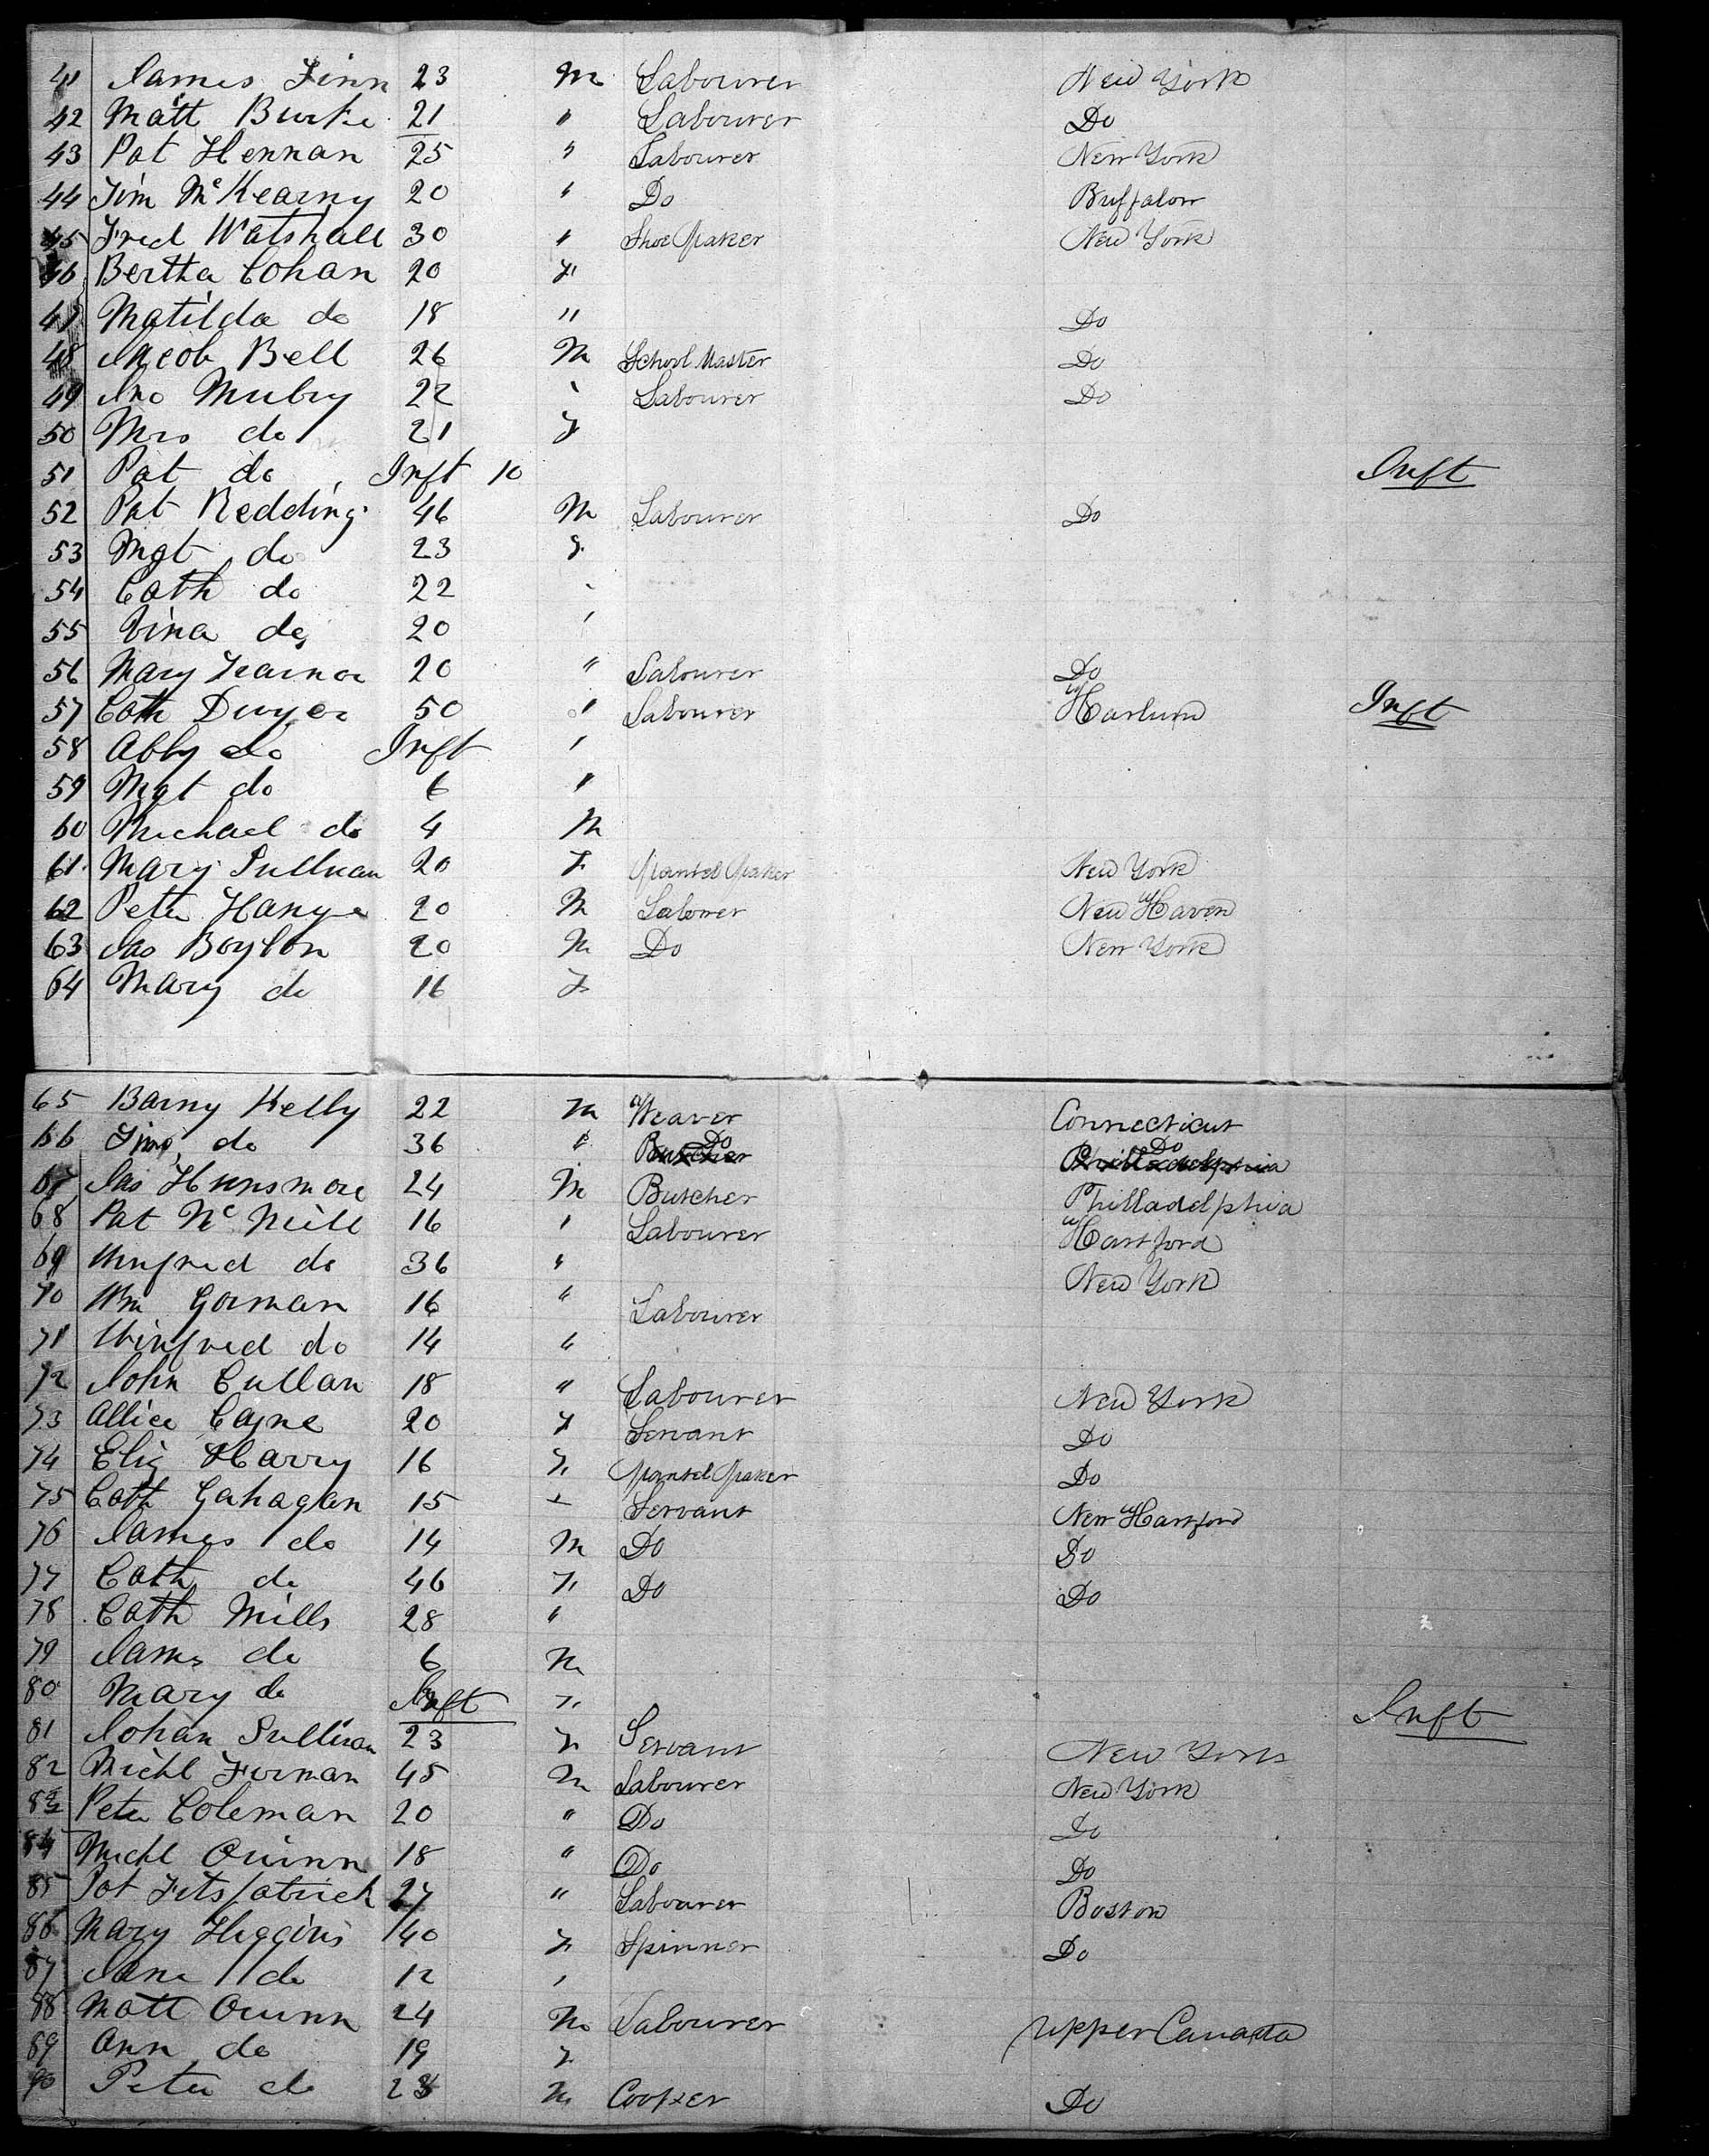 41 James Finn 23 M Labourer New York
42 Matt Burke 21 " Labourer Do
43 Pat Hennan 25 " Labourer New York
44 Jim McKearny 20 " Do Buffalow
45 Fred Watshall 30 " Shoe Maker New York
46 Bertha Cohan 20 F
47 Matilda do 18 " Do
48 Jacob Bell 26 M School Master Do
49 Jno Mulry 22 " Labourer Do
50 Mrs do 21 F
51 Pat do Inft 10 Inft
52 Pat Redding 46 M Labourer Do
53 Mgt do 23 F
54 Cath do 22 "
55 do 20 "
56 Mary 20 " Labourer Do
57 Cath Dwyer 50 " Labourer Harlum Inft
58 Abby do Inft "
59 Mgt do 6 "
60 Michael do 4 M
61 Mary Sullivan 20 F Mantel Maker New York
62 Peter 20 M Labourer New Haven
63 Jas Boylon 20 M Do New York
64 Mary do 16 F
65 Barny Kelly 22 M Weaver Connecticut
66 do 36 " Do Do
67 Jas Hunsmore 24 M Butcher Philladelphia
68 Pat McNeill 16 " Labourer Hartford
69 do 36 " New York
70 Wm Gorman 16 " Labourer
71 Winfred do 14 "
72 John Cullan 18 " Labourer New York
73 Allice Cayne 20 F Servant Do
74 Eliz Harry 16 F Mantel Maker Do
75 Cath Gahagan 15 F Servant New Hartford
76 James do 14 M Do Do
77 Cath do 46 F Do Do
78 Cath Mills 28 "
79 James do 6 M
80 Mary do Inft F Inft
81 Johan Sullivan 23 F Servant New York
82 Michl Furman 45 M Labourer New York
83 Peter Coleman 20 " Do Do
84 Michl Quinn 18 " Do Do
85 Pat Fitspatrick 27 " Labourer Boston
86 Mary Higgins 40 F Spinner Do
87 Jane do 12 "
88 Matt Quinn 24 M Labourer Upper Canada
89 Ann do 19 F
90 Peter do 23 M Cooper Do